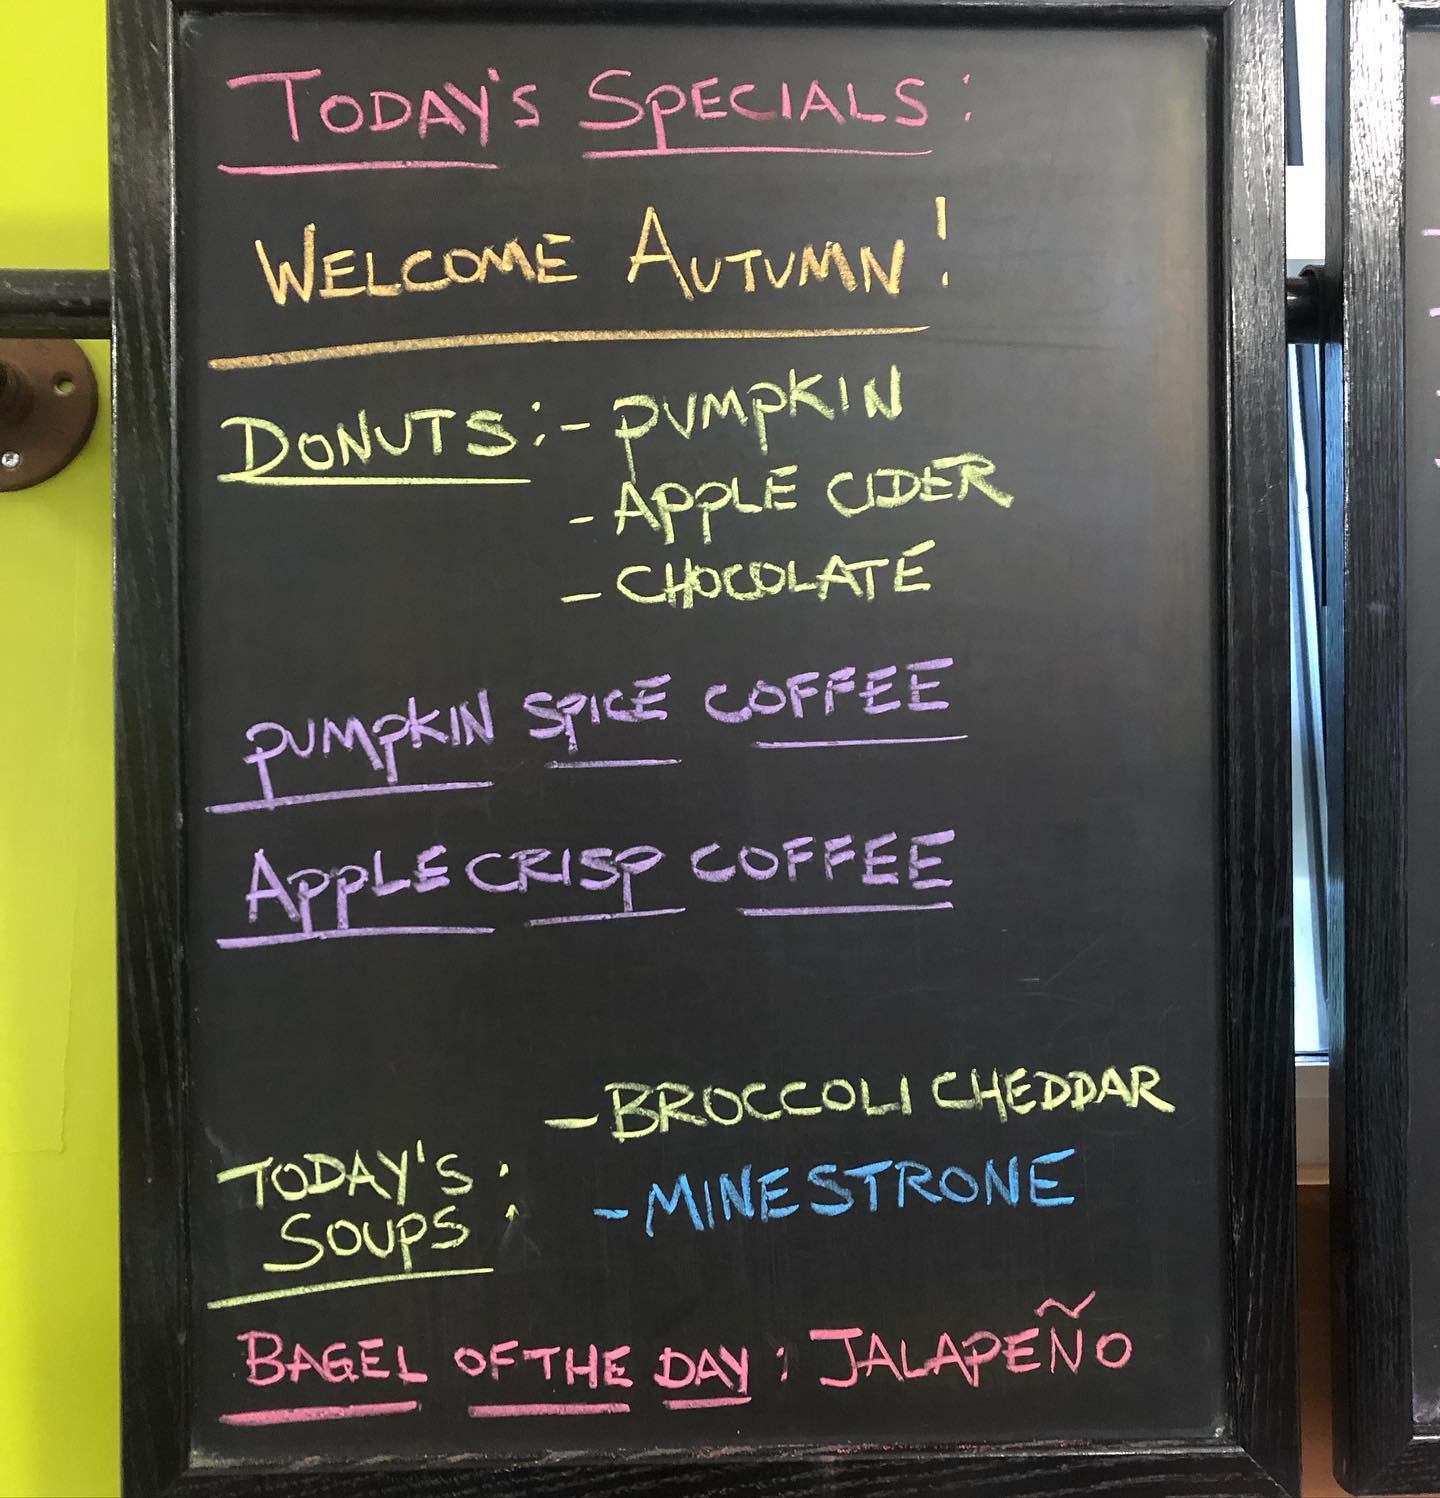 TODAY'S SPECIALS:
WELCOME AUTUMN!
DONUTS: - PUMPKIN
- APPLE CIDER
- CHOCOLATE
PUMPKIN SPICE COFFEE
APPLE CRISP COFFEE
- BROCCOLI CHEDDAR
TODAY'S SOUPS:
- MINESTRONE
BAGEL OF THE DAY: JALAPEÑO